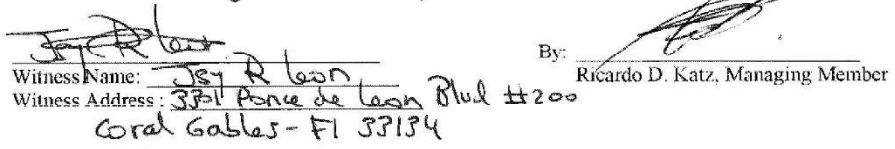 By:
Witness Name: Jay R Leon
Ricardo D. Katz, Managing Member
Witness Address : 3301 Ponce de Leon Blvd #200
Coral Gables - Fl 33134